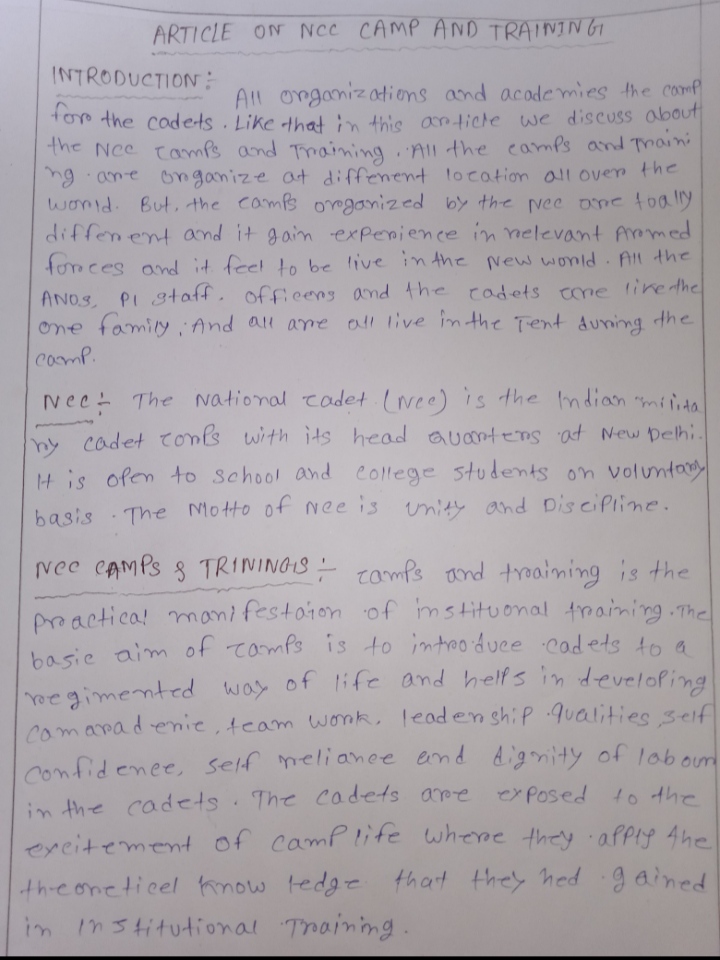 ARTICLE ON NCC CAMP AND TRAINING
INTRODUCTION :-
All organizations and academies the camp
for the cadets. Like that in this article we discuss about
the NCC camps and Training. All the camps and Traini
ng are organize at different location all over the
world. But, the camps organized by the NCC are toally
different and it gain experience in relevant Aromed
forces and it feel to be live in the New world. All the
ANOS, PI staff, officers and the cadets are live the
one family. And all are all live in the Tent during the
camp.
NCC :- The National cadet (NCC) is the Indian milita
ry cadet corps with its head quarters at New Delhi.
It is open to school and college students on voluntary
basis. The Motto of NCC is unity and Discipline.
NCC CAMPS & TRININGS :- camps and training is the
practical manifestaion of instituonal training. The
basic aim of camps is to introduce cadets to a
regimented way of life and helps in developing
camaraderie, team work, leadership qualities, self
confidence, self reliance and dignity of labour
in the cadets. The cadets are exposed to the
excitement of camp life where they apply the
theoreticel know ledge that they hed gained
in Institutional Training.